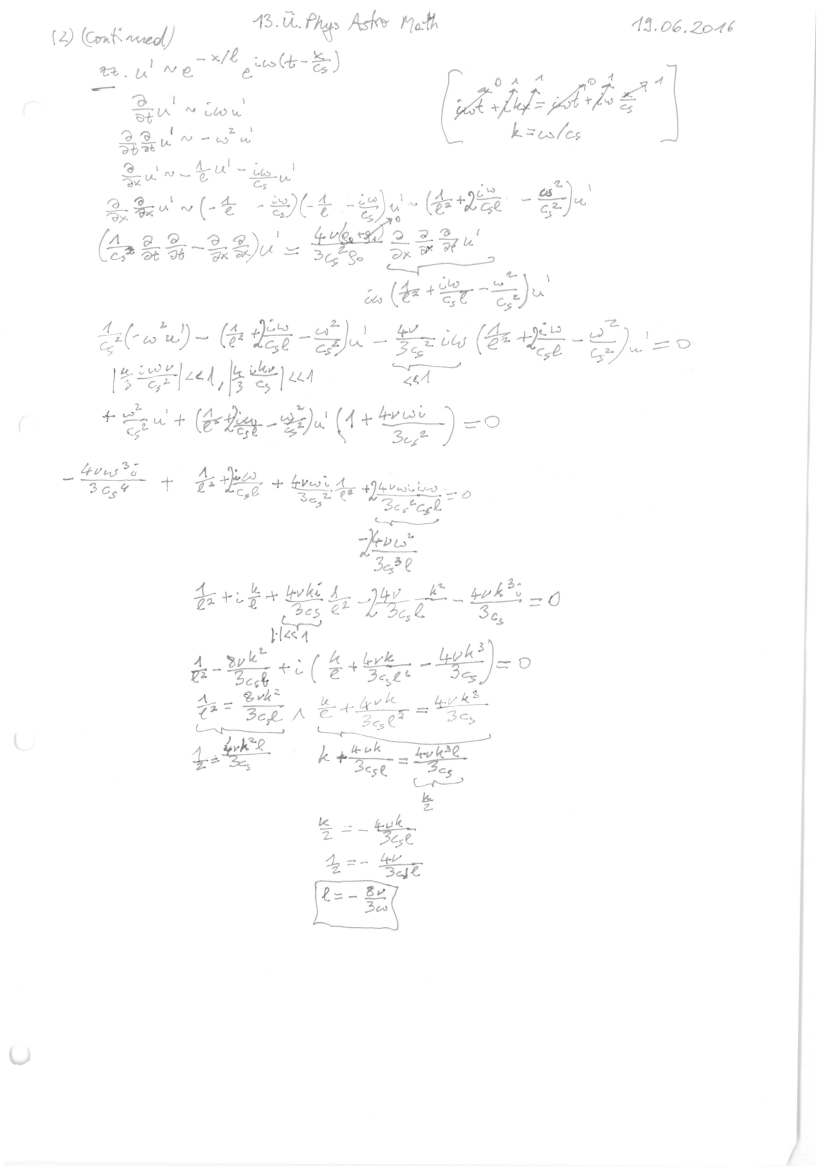 13. Ü. Phys Astro Math 19.06.2016
(2) (Continued)
zz. u' ~ e^{-x/l} e^{iω(t - x/c_s)}
[iωt + ikx = iωt + iω x/c_s
k = ω/c_s]
∂/∂t u' ~ iωu'
∂/∂t ∂/∂t u' ~ -ω² u'
∂/∂x u' ~ -1/l u' - iω/c_s u'
∂/∂x ∂/∂x u' ~ (-1/l - iω/c_s)(-1/l - iω/c_s) u' ~ (1/l² + 2iω/(c_s l) - ω²/c_s²) u'
(1/c_s² ∂/∂t ∂/∂t - ∂/∂x ∂/∂x) u' = 4ν(ρ₀+ρ₁)/(3c_s² ρ₀) ∂/∂x ∂/∂x ∂/∂t u'
iω (1/l² + iω/(c_s l) - ω²/c_s²) u'
1/c_s² (-ω² u') - (1/l² + 2iω/(c_s l) - ω²/c_s²) u' - 4ν/(3c_s²) iω (1/l² + 2iω/(c_s l) - ω²/c_s²) u' = 0
|4/3 iων/c_s²| <<1, |4/3 ikν/c_s| <<1 <<1
+ ω²/c_s² u' + (1/l² + 2iω/(c_s l) - ω²/c_s²) u' (1 + 4νωi/(3c_s²)) = 0
- 4νω³i/(3c_s⁴) + 1/l² + 2iω/(c_s l) + 4νωi/(3c_s²) 1/l² + 2 4νωiiω/(3c_s² c_s l) = 0
-2 4νω²/(3c_s³ l)
1/l² + i k/l + 4νki/(3c_s) 1/l² - 2 4ν/(3c_s l) k² - 4νk³i/(3c_s) = 0
|·|<<1
1/l² - 8νk²/(3c_s l) + i (k/l + 4νk/(3c_s l²) - 4νk³/(3c_s)) = 0
1/l² = 8νk²/(3c_s l) ∧ k/l + 4νk/(3c_s l²) = 4νk³/(3c_s)
1/2 = 4νk²l/(3c_s) k + 4νk/(3c_s l) = 4νk³l/(3c_s)
k/2
k/2 = - 4νk/(3c_s l)
1/2 = - 4ν/(3c_s l)
l = - 8ν/(3ω)